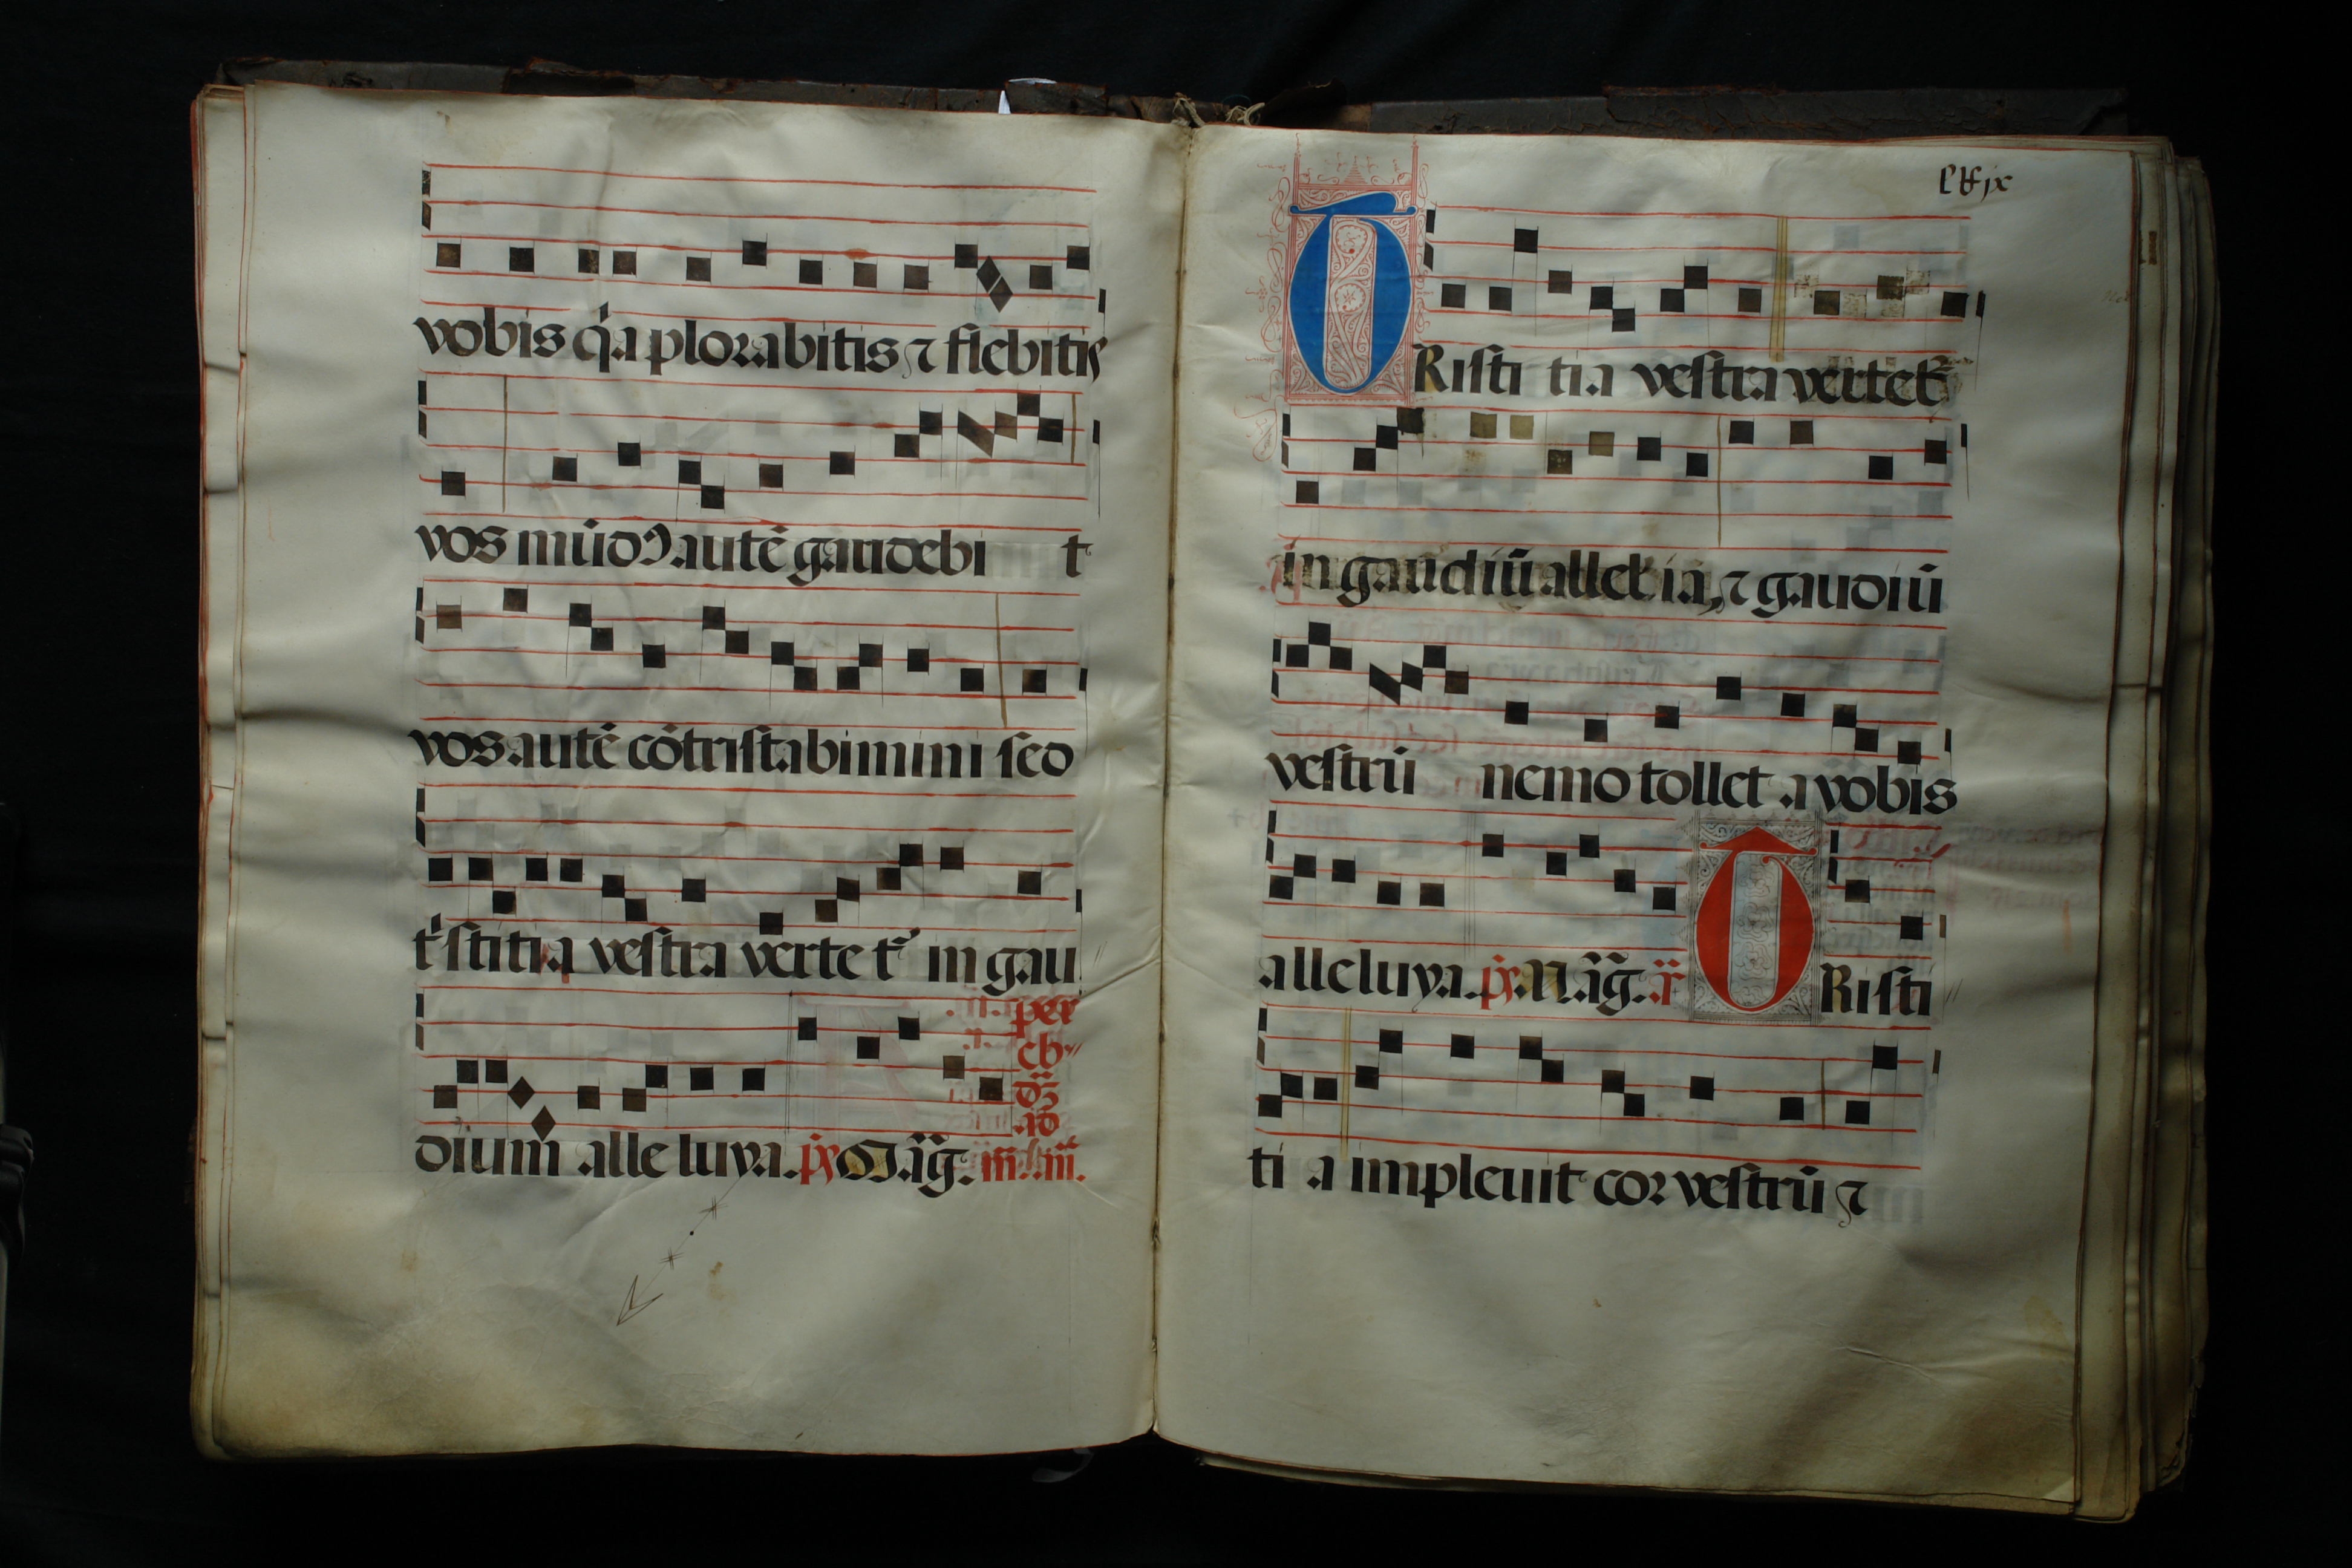 vobis q̇a plorabitis ⁊ flebitis
vos mūdꝰ autē gaudebi t
vos autē cōtristabimini sed
t̾stitia vestra vertet᷑ in gau
dium alleluya. p̄s Māg.
per
cb
ad
TRisti tia vestra vertet᷑
in gaudiū alleluia, ⁊ gaudiū
vestrū nemo tollet a vobis
alleluya. p̄s. Māg. TRisti
ti a impleuit cor vestrū ⁊